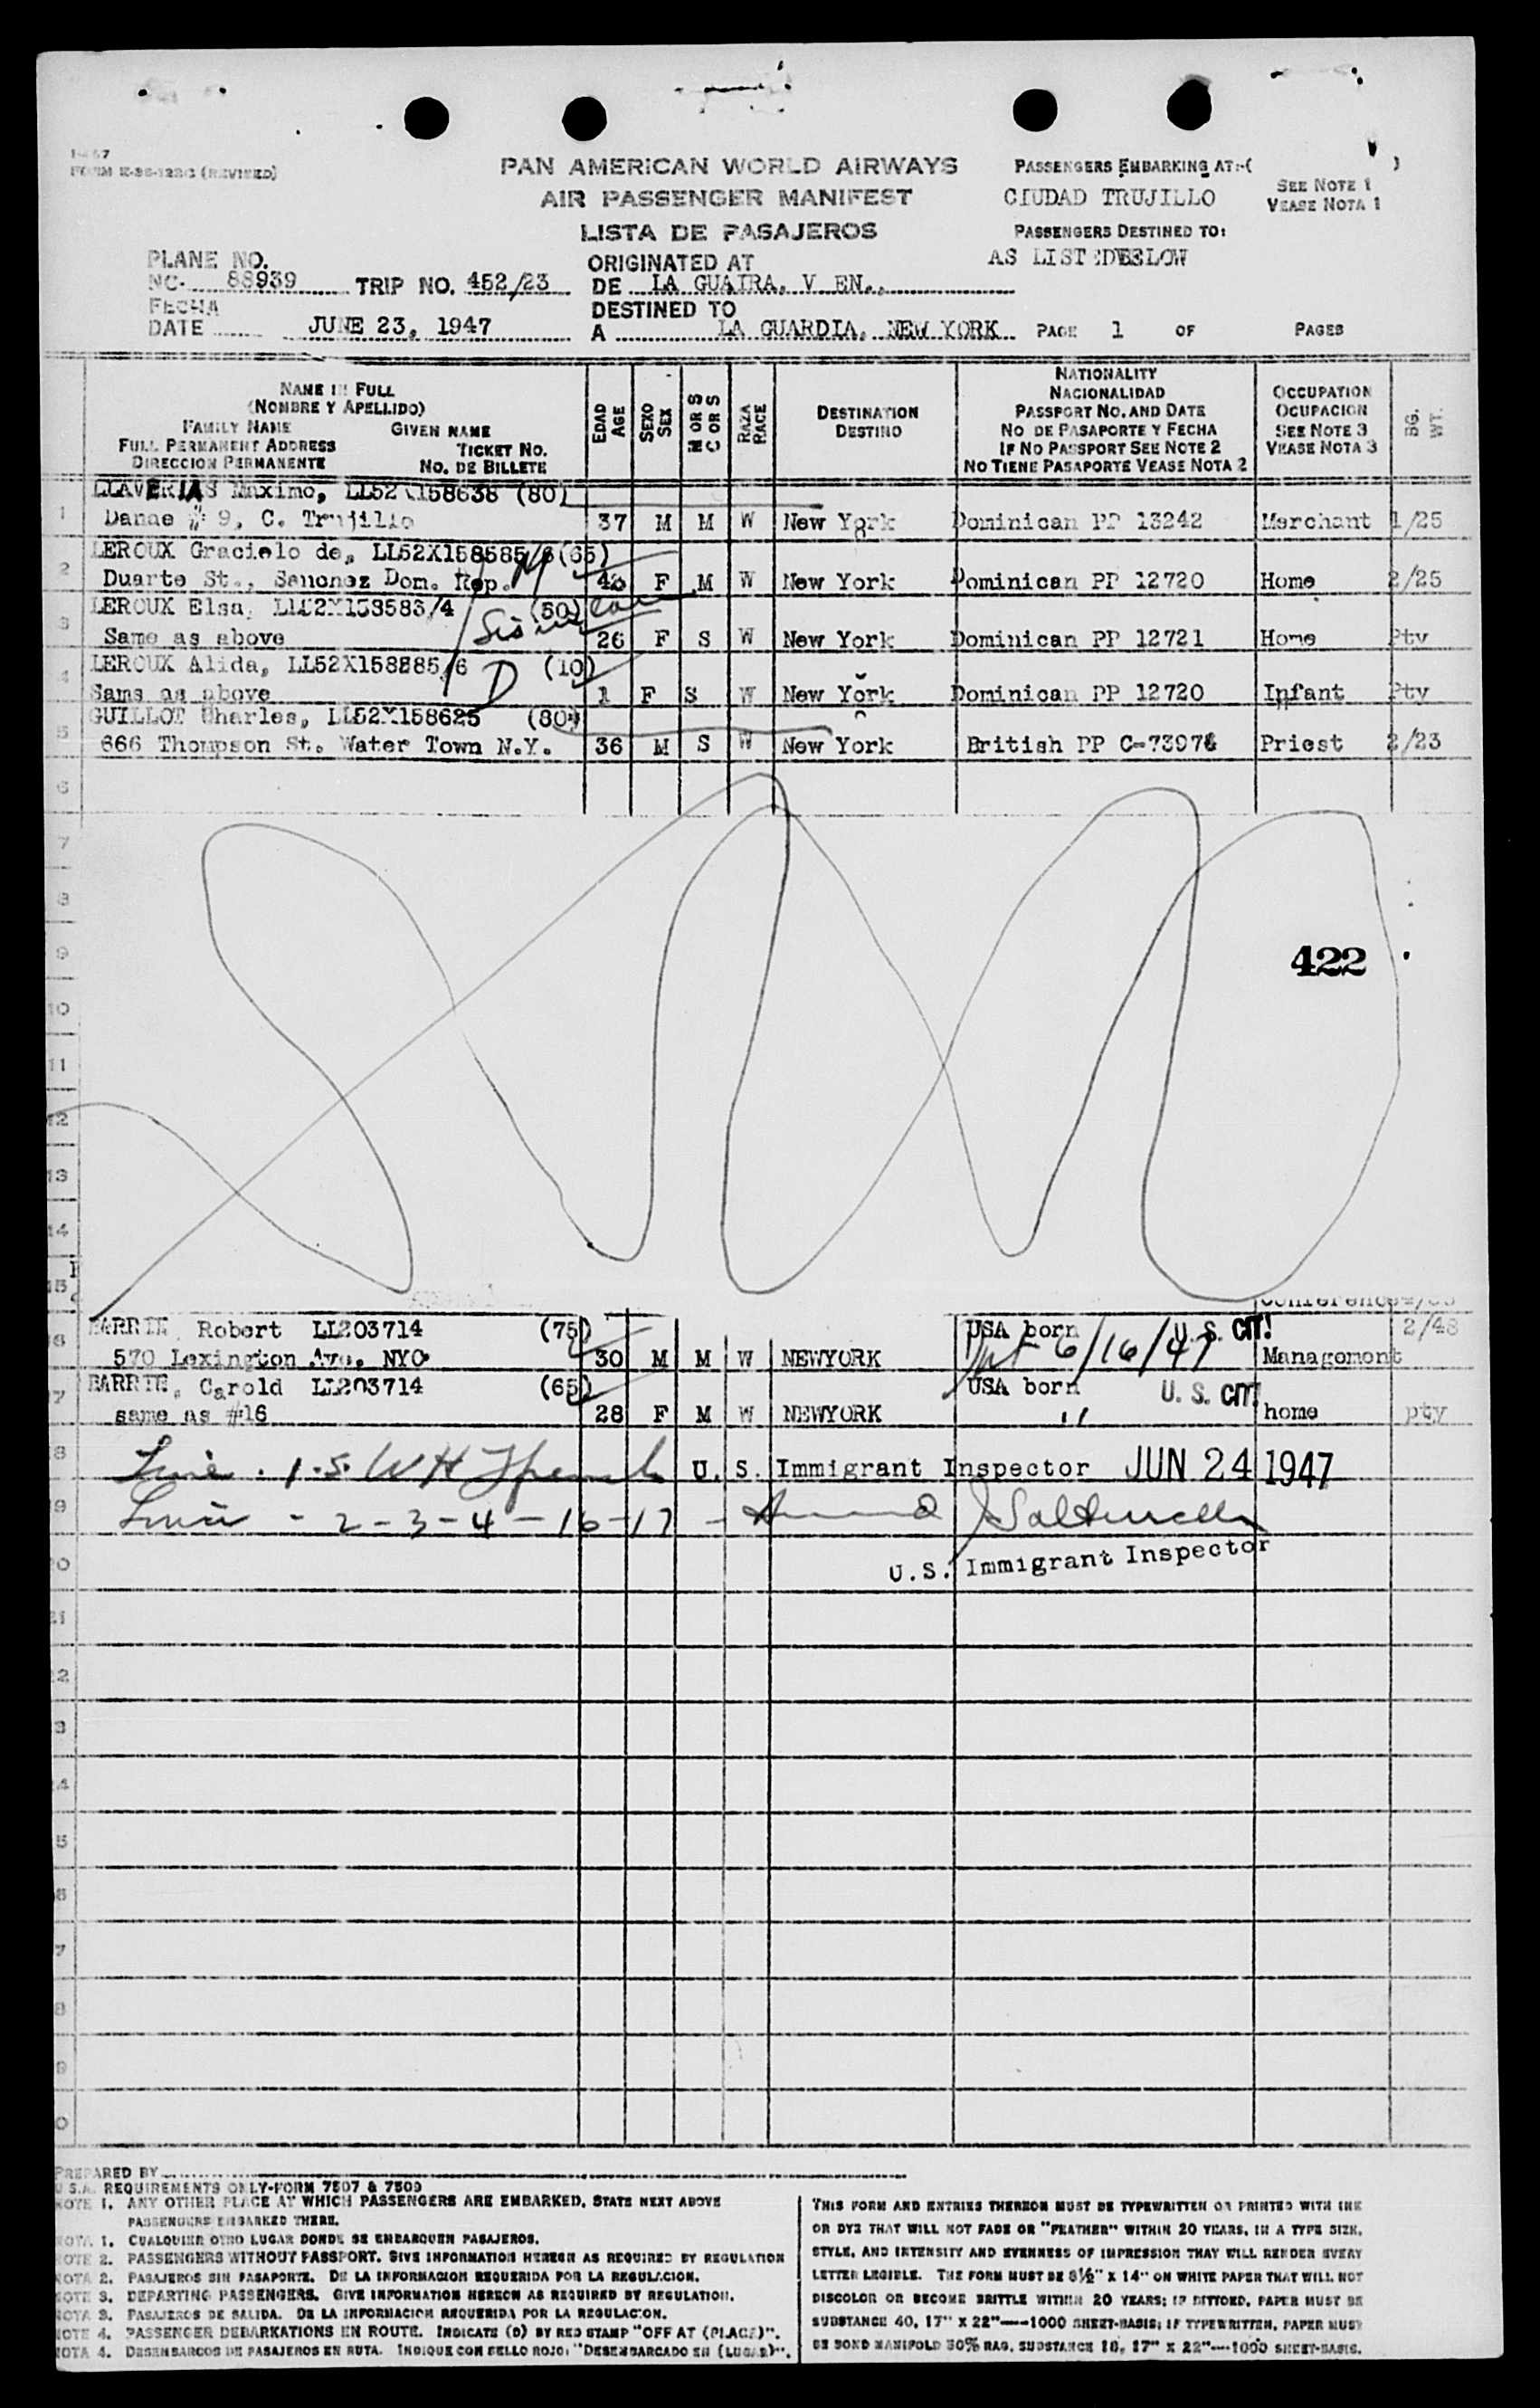 1-467
FORM K-38-122C (REVISED)
PAN AMERICAN WORLD AIRWAYS
AIR PASSENGER MANIFEST
LISTA DE PASAJEROS
PASSENGERS EMBARKING AT:-( )
CIUDAD TRUJILLO
SEE NOTE 1
VEASE NOTA 1
PASSENGERS DESTINED TO:
AS LISTED BELOW
PLANE NO.
NC- 88939 TRIP NO. 452/23
ORIGINATED AT
DE LA GUAIRA, V EN.,
FECHA
DATE JUNE 23, 1947
DESTINED TO
A LA GUARDIA, NEW YORK PAGE 1 OF PAGES
NAME IN FULL
(NOMBRE Y APELLIDO)
FAMILY NAME GIVEN NAME
FULL PERMANENT ADDRESS TICKET NO.
DIRECCION PERMANENTE NO. DE BILLETE
EDAD
AGE
SEXO
SEX
M OR S
C OR S
RAZA
RACE
DESTINATION
DESTINO
NATIONALITY
NACIONALIDAD
PASSPORT NO. AND DATE
NO DE PASAPORTE Y FECHA
IF NO PASSPORT SEE NOTE 2
NO TIENE PASAPORTE VEASE NOTA 2
OCCUPATION
OCUPACION
SEE NOTE 3
VEASE NOTA 3
BG.
WT.
LLAVERIAS Maximo, LL52X158638 (80)
1 Danae # 9, C. Trujillo 37 M M W New York Dominican PP 13242 Merchant 1/25
LEROUX Gracielo de, LL52X158585/6 (65)
2 Duarte St., Sanchez Dom. Rep. F M W New York Dominican PP 12720 Home 2/25
LEROUX Elsa, (50)
3 Same as above 26 F S W New York Dominican PP 12721 Home Pty
LEROUX Alida, LL52X158585/6 D (10)
4 Same as above 1 F S W New York Dominican PP 12720 Infant Pty
GUILLOT Charles, LL52X158625 (80)
5 666 Thompson St. Water Town N.Y. 36 M S W New York British PP C-73978 Priest 2/23
6
7
8
9
422
10
11
12
13
14
15
Conference
BARRIE, Robert LL203714 (75) USA born U. S. CIT! 2/48
6 570 Lexington Ave. NYC 30 M M W NEWYORK 6/16/47 Management
BARRIE, Carold LL203714 (65) USA born U. S. CIT!
7 same as #16 28 F M W NEWYORK " home pty
8 Line . 1.5. U. S. Immigrant Inspector JUN 24 1947
9 Line - 2-3-4-16-17 -
0 U.S. Immigrant Inspector
21
2
3
4
5
6
7
8
9
0
PREPARED BY
U.S.A. REQUIREMENTS ONLY-FORM 7507 & 7509
NOTE 1. ANY OTHER PLACE AT WHICH PASSENGERS ARE EMBARKED, STATE NEXT ABOVE
PASSENGERS EMBARKED THERE.
NOTA 1. CUALQUIER OTRO LUGAR DONDE SE EMBARQUEN PASAJEROS.
NOTE 2. PASSENGERS WITHOUT PASSPORT. GIVE INFORMATION HEREON AS REQUIRED BY REGULATION
NOTA 2. PASAJEROS SIN PASAPORTE. DE LA INFORMACION REQUERIDA POR LA REGULACION.
NOTE 3. DEPARTING PASSENGERS. GIVE INFORMATION HEREON AS REQUIRED BY REGULATION.
NOTA 3. PASAJEROS DE SALIDA. DE LA INFORMACION REQUERIDA POR LA REGULACION.
NOTE 4. PASSENGER DEBARKATIONS EN ROUTE. INDICATE (D) BY RED STAMP "OFF AT (PLACE)".
NOTA 4. DESEMBARCOS DE PASAJEROS EN RUTA. INDIQUE CON SELLO ROJO: "DESEMBARCADO EN (LUGAR)".
THIS FORM AND ENTRIES THEREON MUST BE TYPEWRITTEN OR PRINTED WITH INK
OR DYE THAT WILL NOT FADE OR "FEATHER" WITHIN 20 YEARS, IN A TYPE SIZE,
STYLE, AND INTENSITY AND EVENNESS OF IMPRESSION THAT WILL RENDER EVERY
LETTER LEGIBLE. THE FORM MUST BE 8½" X 14" ON WHITE PAPER THAT WILL NOT
DISCOLOR OR BECOME BRITTLE WITHIN 20 YEARS; IF DITTOED, PAPER MUST BE
SUBSTANCE 40, 17" X 22"----1000 SHEET-BASIS; IF TYPEWRITTEN, PAPER MUST
BE BOND MANIFOLD 50% RAG, SUBSTANCE 18, 17" X 22"----1000 SHEET-BASIS.